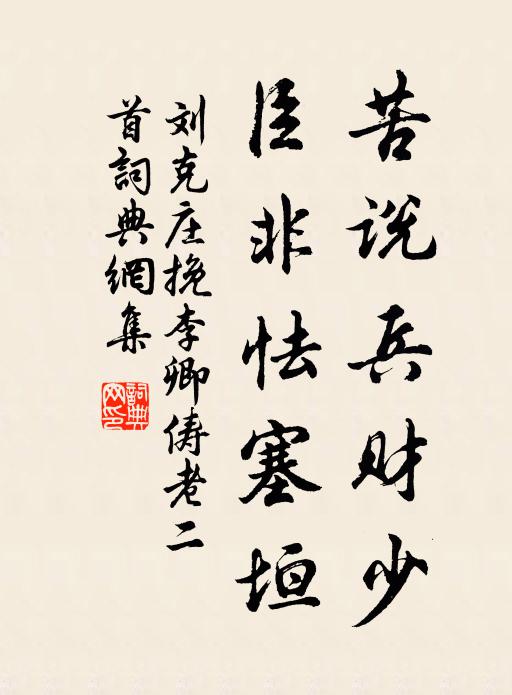 苦说兵财少
臣非怯塞垣
刘克庄挽李卿俦老二
首词典網集
詞典網印